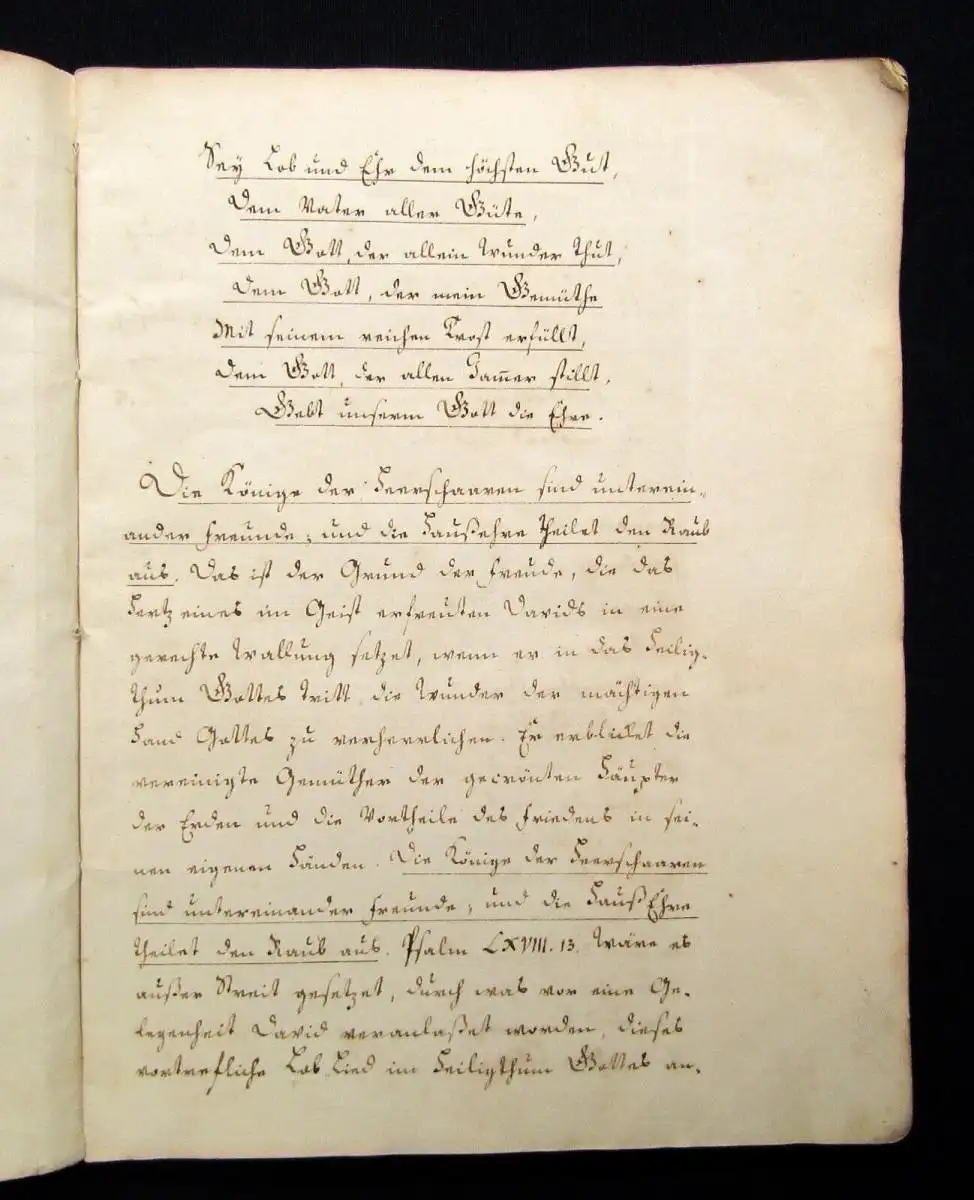 Sey Lob und Ehr dem höchsten Gut,
Dem Vater aller Güte,
Dem Gott, der allein Wunder thut,
Dem Gott, der mein Gemüthe
Mit seinem reichen Trost erfüllt,
Dem Gott, der allen Jam̅er stillt,
Gebt unserm Gott die Ehre.
Die Könige der Heerschaaren sind unterein-
ander Freunde; und die Haußehre theilet den Raub
aus. Das ist der Grund der Freude, die das
Hertz eines im Geist erfreuten Davids in eine
gerechte Wallung setzet, wenn er in das Heilig-
thum Gottes tritt die Wunder der mächtigen
Hand Gottes zu verherrlichen. Er erblicket die
vereinigte Gemüther der gecrönten Häupter
der Erden und die Vortheile des Friedens in sei-
nen eigenen Händen. Die Könige der Heerschaaren
sind untereinander Freunde; und die HaußEhre
theilet den Raub aus. Psalm LXVIII. 13. Wäre es
außer Streit gesetzet, durch was vor eine Ge-
legenheit David veranlaßet worden, dieses
vortrefliche Lob Lied im Heiligthum Gottes an-